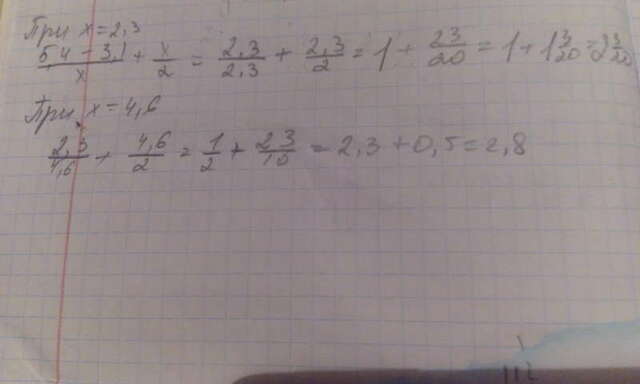 При x = 2,3
(5,4 - 3,1)/x + x/2 = 2,3/2,3 + 2,3/2 = 1 + 23/20 = 1 + 1 3/20 = 2 3/20
При x = 4,6
2,3/4,6 + 4,6/2 = 1/2 + 23/10 = 2,3 + 0,5 = 2,8